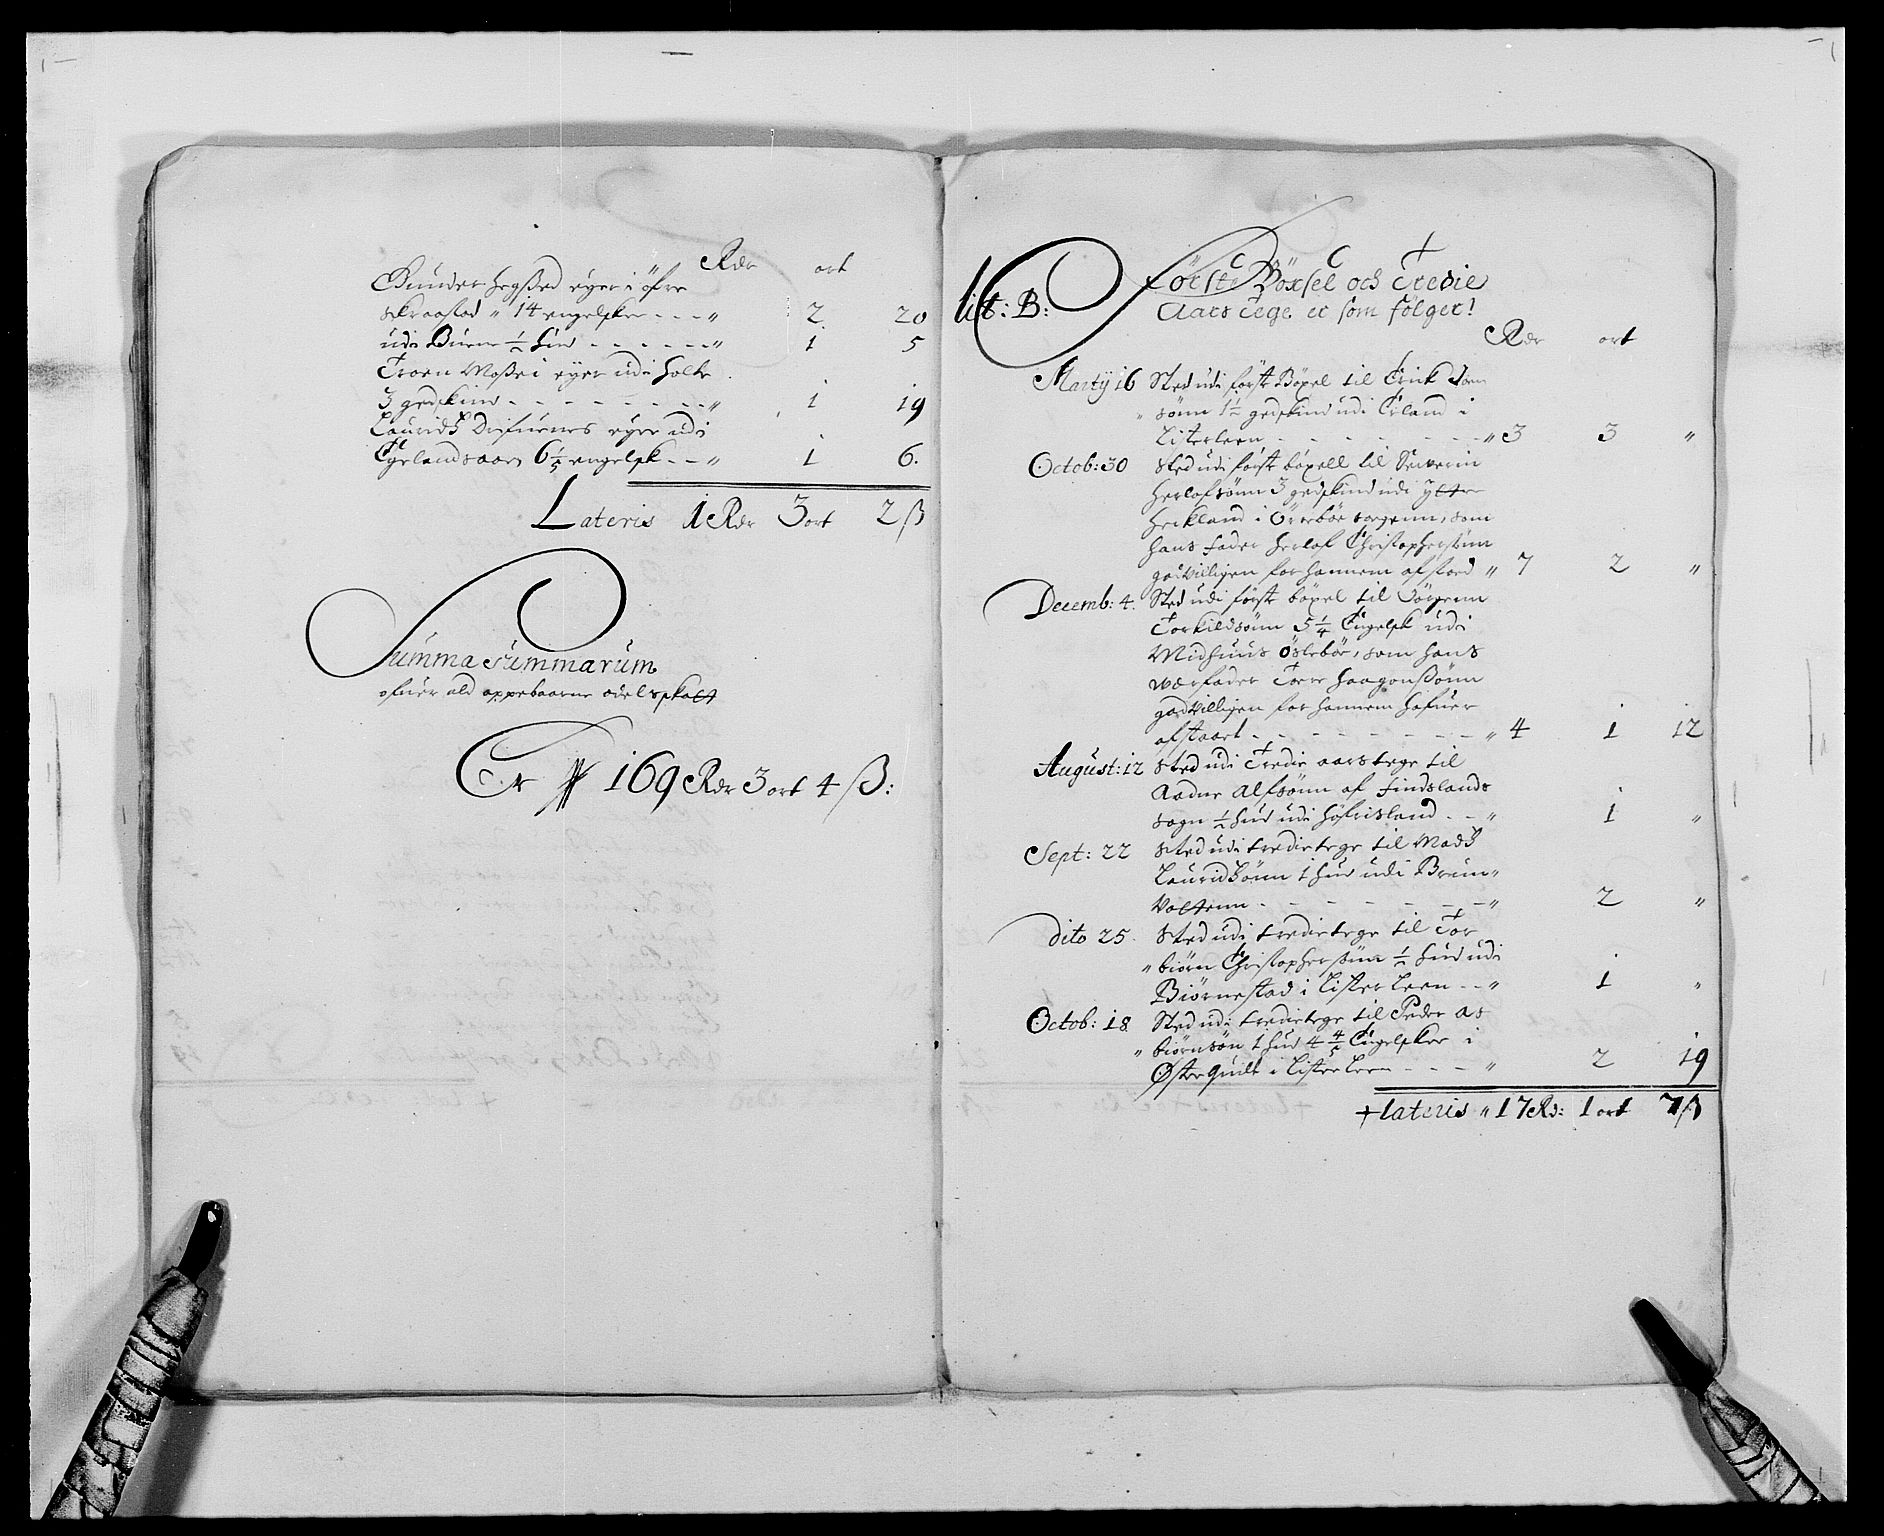 Rdr ort
Gunder Hegsted eyer i öfre
Skraastad " 14 engelsker - - - " 2 20
udi Buene ½ hud - - - - - - " 1 5
Troen Mossei eyer udi Holte
3 gedskind - - - - - - - - " 1 19
Lauridtz Diefuenes eyer udi
Egelandsaaen 6 1/5 engelsk - - " 1 6.
Lateris 1 Rdr 3 ort 2 ß
Summa Summarum
ofuer ald oppebaarne odelsskatt
Er 169 Rdr 3 ort 4 ß:
lit: B: Förste Böxsel och Tredie
Aars tege er som fölger!
Rdr ort
Martÿ 16 Sted udi först Böxel til Erick Joen
" sönn 1½ gedskind udi Eiland i
Listerleen - - - - - - - " 3 3 "
Octob: 30 Sted udi först böxell til Seiverin
Herlofsönn 3 gedskind udi Ÿttre
Heckland i Öreböe sogenn, som
hans fader Herlof Christophersönn
godvilligen for hannem afstoed " 7 2 "
Decemb: 4. Sted udi först böxel til Jörgenn
Torkildsönn 5¼ Engelsk udi
Midhuus Ösleböe, som hans
værfader Tore Haagensönn
godvilligen for hannem hafuer
afstaaet - - - - - - - - " 4 1 12
August: 12 Sted udi Tredie aars tege til
Aadne Alfsönn af Findslands
sogn ½ hud udi Höfrisland - - " 1 "
Sept: 22 Sted udi tredie tege til Madtz
Lauridtzönn 1 hud udi Brun"
vattenn - - - - - - - " 2 "
dito 25. Sted udi tredie tege til Tor
" biörn Christophersönn ½ hud udi
Biörnestad i Lister Leen - - " 1 "
Octob: 18 Sted udi tredie tege til Peder As
" biörnsön 1 hud 4 4/5 Engelsker i
Østerquilt i Lister Leen - - - " 2 19
+ lateris " 17 Rd: 1 ort 7 ß